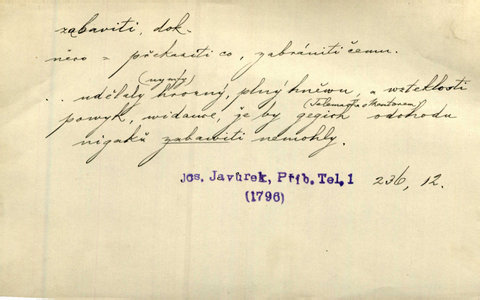 zabaviti, dok.
něco = překaziti co, zabrániti čemu.
(nymfy)
.. udělaly hrozný, plný hněwu, a wzteklosti
(Telemacha s Mentorem)
powyk, widauce, že by gegich odchodu
nigakž zabawiti nemohly.
Jos. Javůrek, Příb. Tel. 1 236, 12.
(1796)